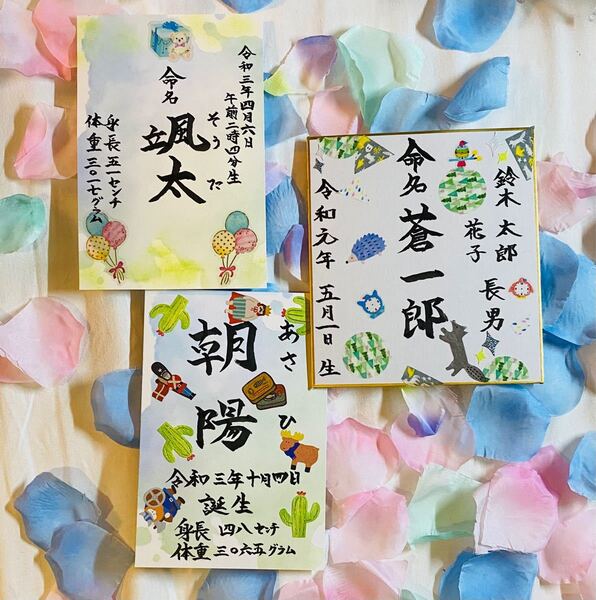 令和三年四月六日
午前二時四分生
命名
颯太
そうた
身長 五一センチ
体重 三〇一七グラム
鈴木 太郎
花子
長男
命名 蒼一郎
令和元年 五月一日 生
朝陽
あさひ
令和三年十月四日
誕生
身長 四八センチ
体重 三〇六五グラム